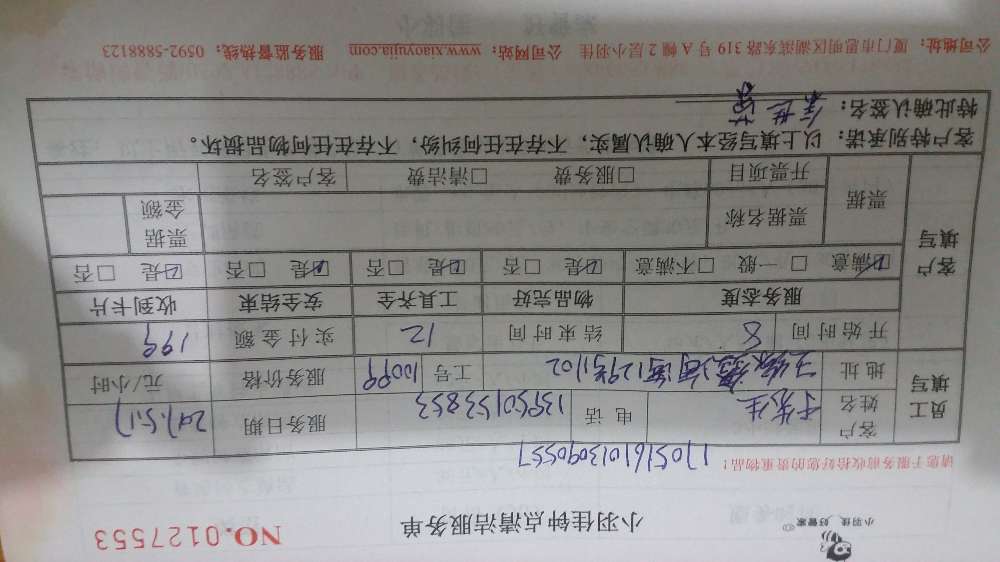 小羽佳 好管家
小羽佳钟点清洁服务单
NO.0127553
请您于服务前收拾好您的贵重物品：
1705161013090557
员工填写
客户姓名 先生 电话 13950153853 服务日期 2017.5.17
地址 工号 10099 服务价格 元/小时
开始时间 8 结束时间 12 实付金额 199
客户填写
服务态度 物品完好 工具齐全 安全结束 收到卡片
☑满意 □一般 □不满意 ☑是 □否 ☑是 □否 ☑是 □否 ☑是 □否
票据 票据名称 票据金额
开票项目 □服务费 □清洁费 客户签名
客户特别承诺：以上填写经本人确认属实，不存在任何纠纷，不存在任何物品损坏。
特此确认签名：
公司地址：厦门市思明区湖滨东路 319 号 A 幢 2 层小羽佳 公司网站：www.xiaoyujia.com 服务监督热线：0592-5888123